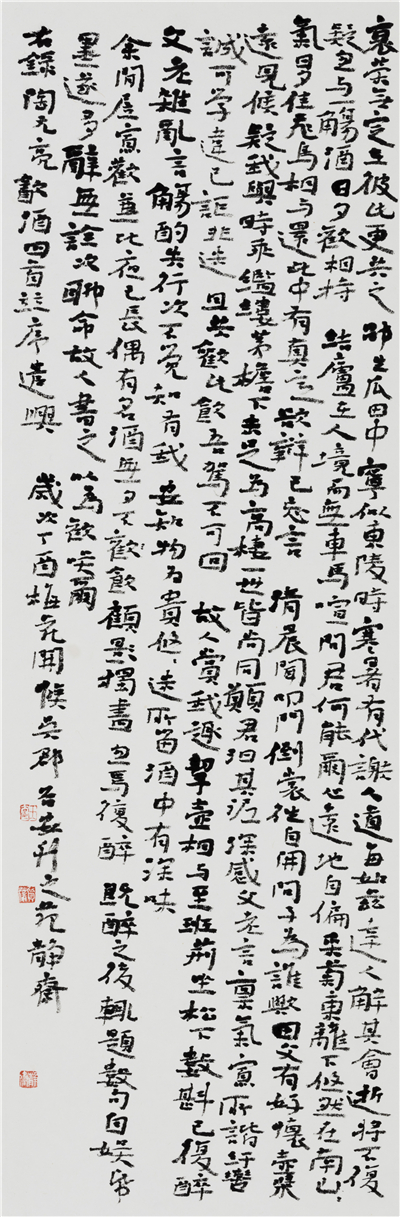 衰榮無定在彼此更共之 邵生瓜田中寧似東陵時寒暑有代謝人道每如茲達人解其會逝將不復
疑忽与一觴酒日夕歡相持 結廬在人境而無車馬喧問君何能爾心遠地自偏采菊東籬下悠然在南山山
氣日夕佳飛鳥相与還此中有真意欲辯已忘言 清晨聞叩門倒裳往自開問子為誰與田父有好懷壺漿
遠見候疑我與時乖襤縷茅檐下未足為高棲一世皆尚同願君汩其泥深感父老言稟氣寡所諧紆轡
誠可学違己詎非迷且共歡此飲吾駕不可回 故人賞我趣挈壺相与至班荊坐松下數斟已復醉
父老雜亂言觴酌失行次不覺知有我安知物為貴悠悠迷所留酒中有深味
余閒居寡歡兼比夜已長偶有名酒無夕不歡飲顧影獨盡忽焉復醉既醉之後輒題數句自娛紙
墨遂多辭無詮次聊命故人書之以為歡笑爾
右錄陶元亮飲酒四首並序遣興 歲次丁酉梅花開候吳郡